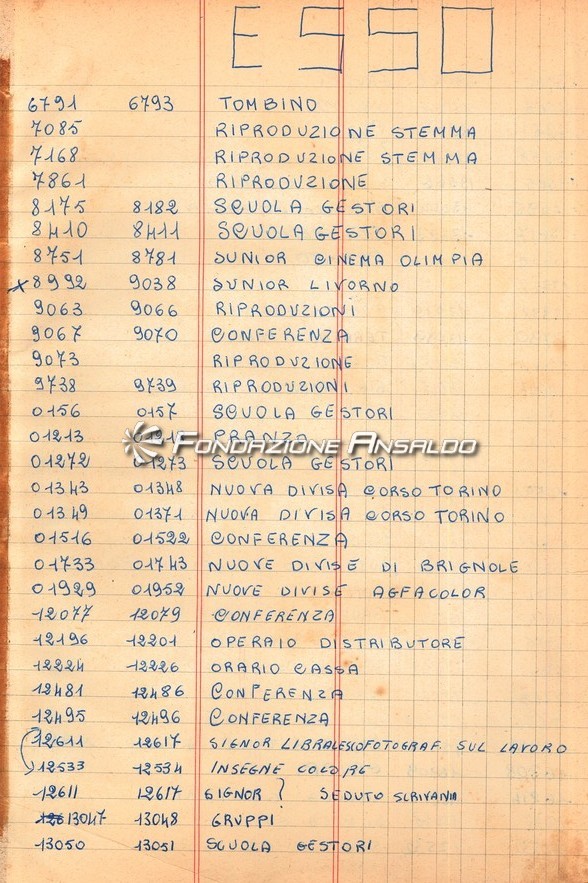 ESSO
6791 6793 TOMBINO
7085 RIPRODUZIONE STEMMA
7168 RIPRODUZIONE STEMMA
7861 RIPRODUZIONE
8175 8182 SCUOLA GESTORI
8410 8411 SCUOLA GESTORI
8751 8781 JUNIOR CINEMA OLIMPIA
x 8992 9038 JUNIOR LIVORNO
9063 9066 RIPRODUZIONI
9067 9070 CONFERENZA
9073 RIPRODUZIONE
9738 9739 RIPRODUZIONI
0156 0157 SCUOLA GESTORI
01213 PRANZO
FONDAZIONE ANSALDO
01272 01273 SCUOLA GESTORI
01343 01348 NUOVA DIVISA CORSO TORINO
01349 01371 NUOVA DIVISA CORSO TORINO
01516 01522 CONFERENZA
01733 01743 NUOVE DIVISE DI BRIGNOLE
01929 01952 NUOVE DIVISE AGFACOLOR
12077 12079 CONFERENZA
12196 12201 OPERAIO DISTRIBUTORE
12224 12226 ORARIO CASSA
12481 12486 CONFERENZA
12495 12496 CONFERENZA
12611 12617 SIGNOR FOTOGRAF. SUL LAVORO
12533 12534 INSEGNE COLORE
12611 12617 SIGNOR ? SEDUTO SCRIVANIA
13047 13048 GRUPPI
13050 13051 SCUOLA GESTORI